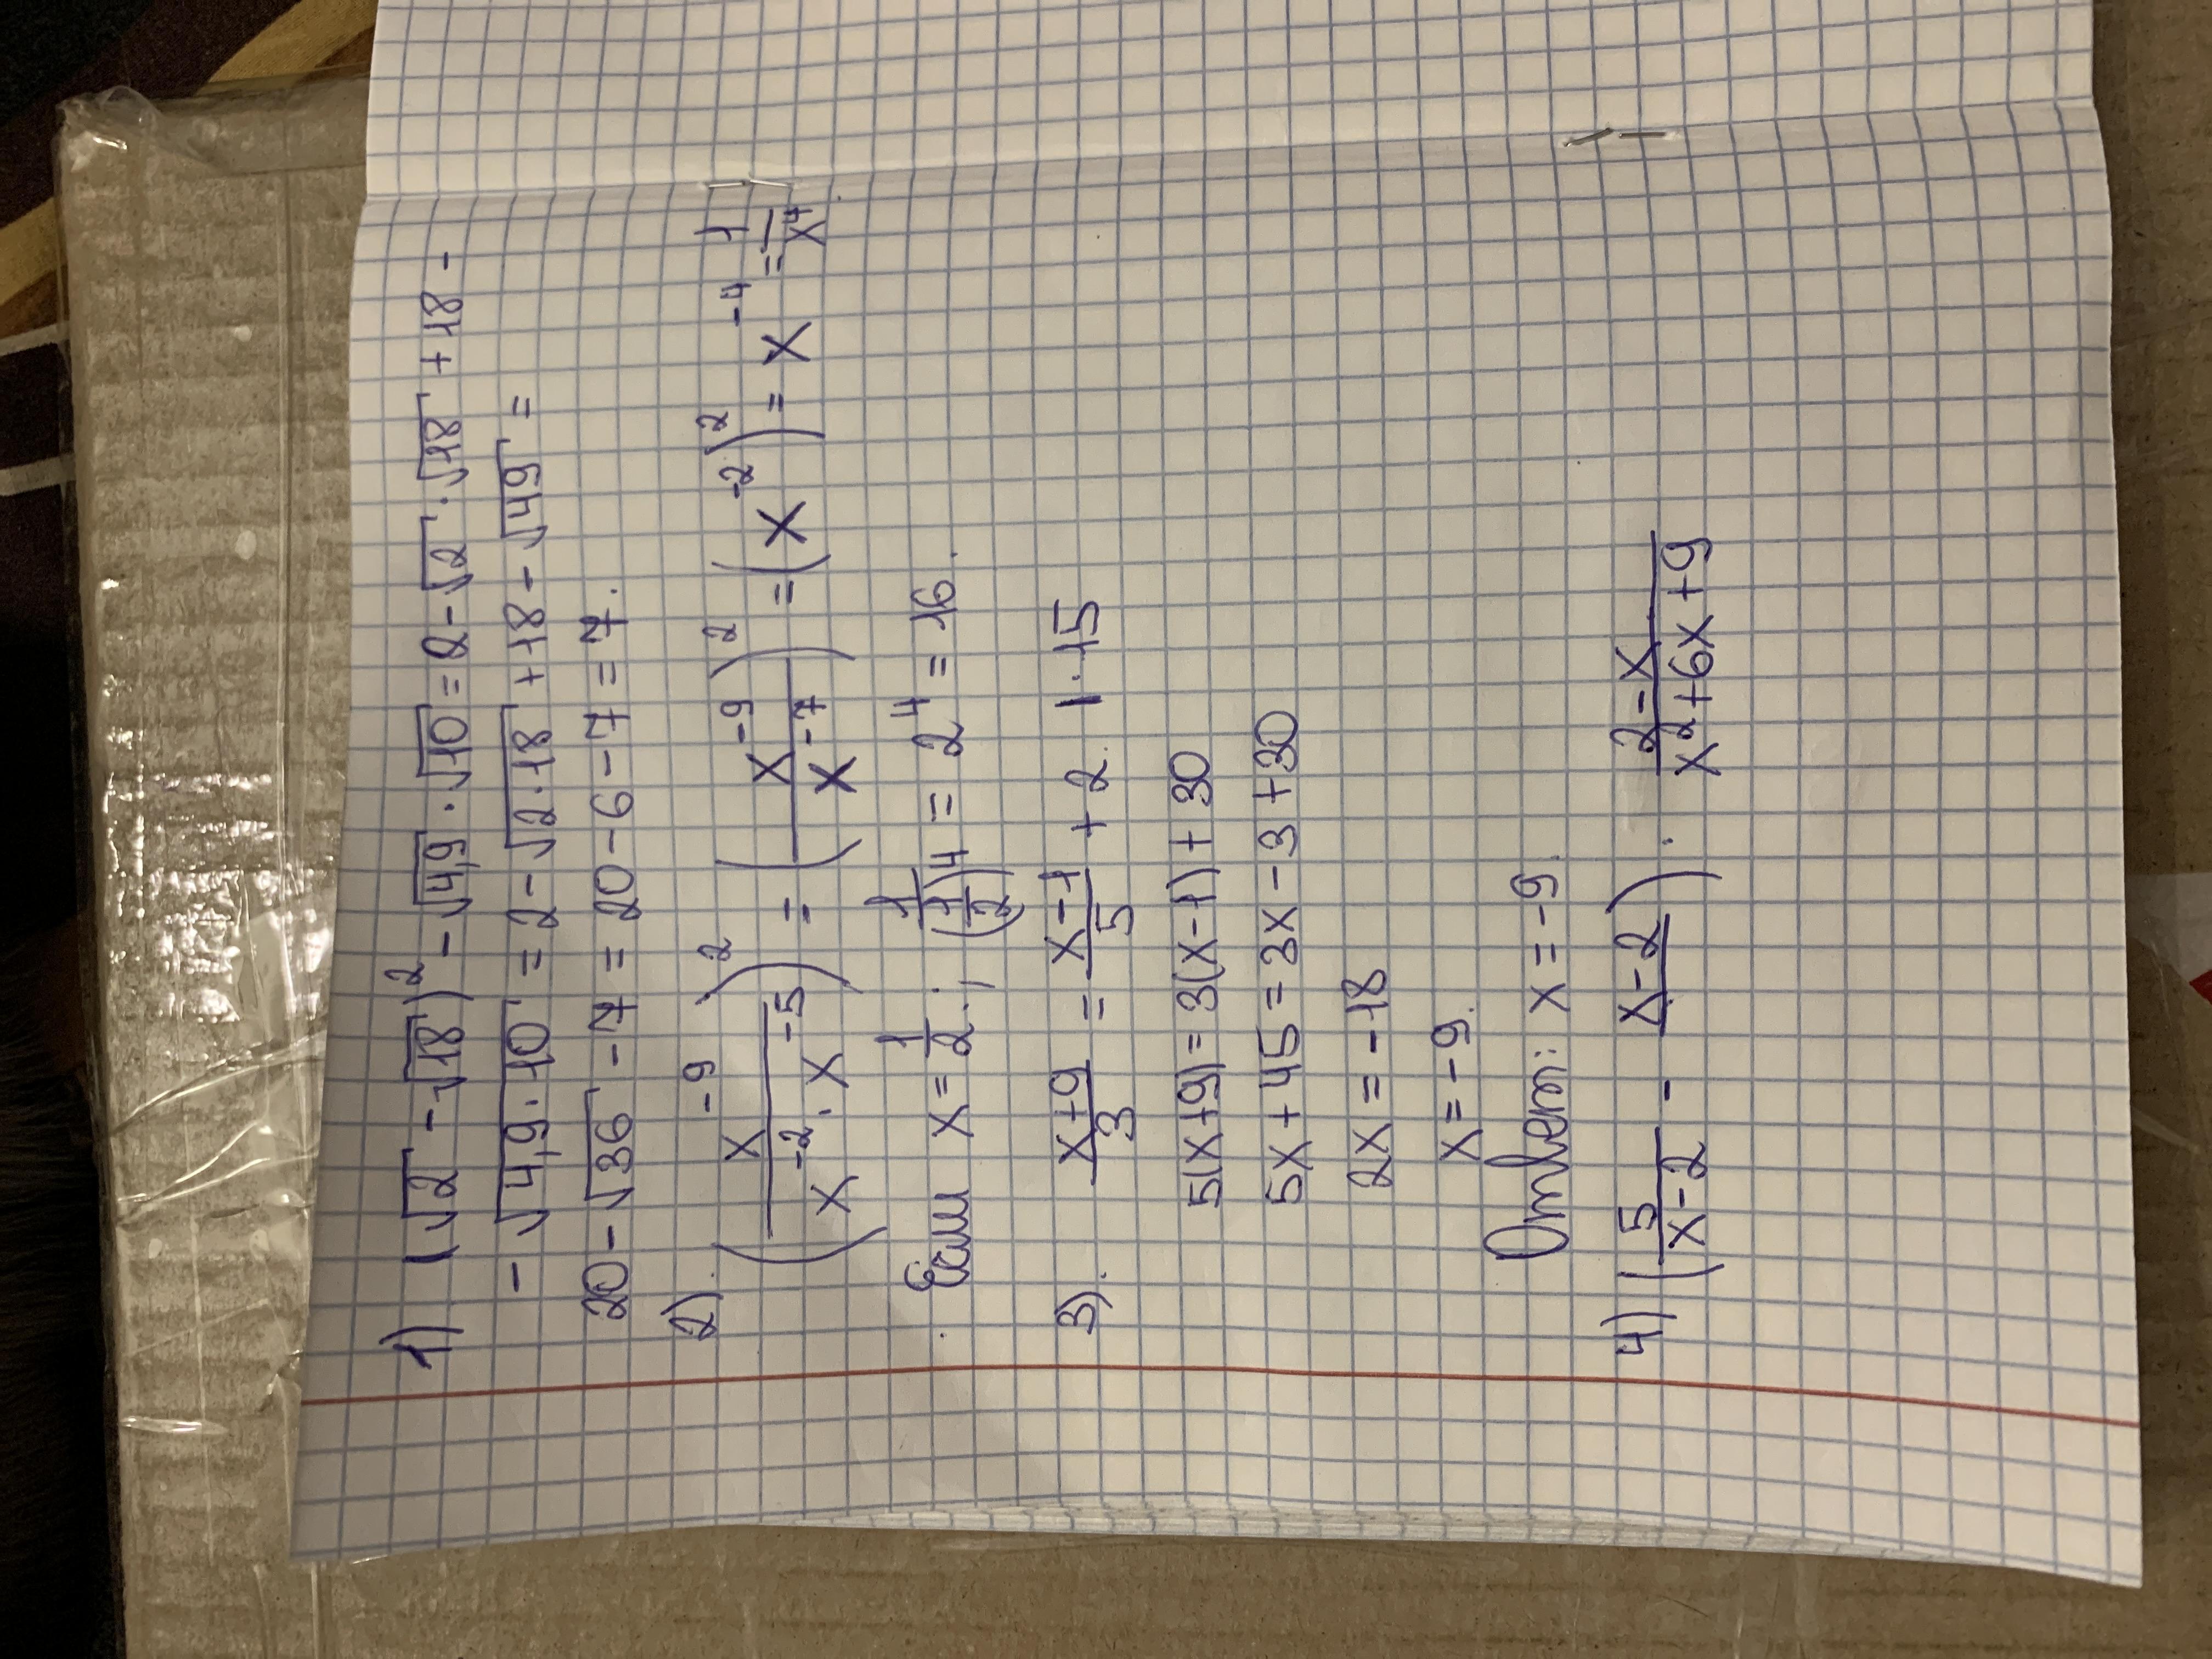 1) (√2 - √18)² - √4,9 · √10 = 2 - √2 · √18 + 18 -
- √4,9 · 10 = 2 - √2 · 18 + 18 - √49 =
20 - √36 - 7 = 20 - 6 - 7 = 7.
2). (x⁻⁹ / (x⁻² · x⁻⁵))² = (x⁻⁹ / x⁻⁷)² = (x⁻²)² = x⁻⁴ = 1/x⁴
Если x = 1/2 ; 1/(1/2)⁴ = 2⁴ = 16.
3). (x+9)/3 = (x-1)/5 + 2 | · 15
5(x+9) = 3(x-1) + 30
5x + 45 = 3x - 3 + 30
2x = -18
x = -9.
Ответ: x = -9.
4) (5/(x-2) - (x-2)/) · (2-x)/(x²+6x+9)